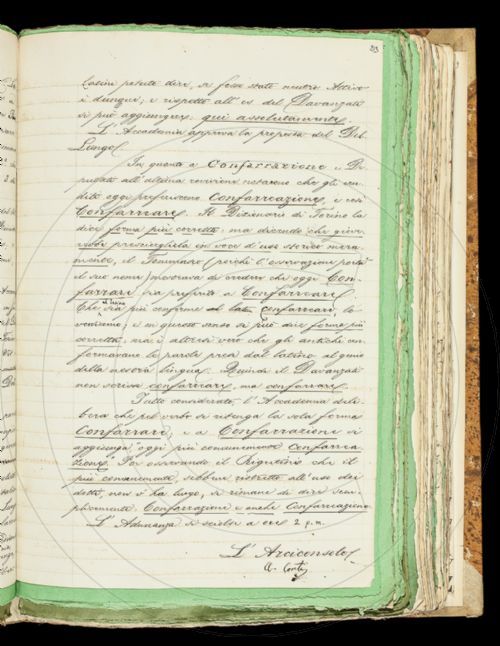 213
latini potuto dire, se fosse stato neutro. Attivo
è dunque, e rispetto all'es. del Davanzati
si può aggiungere: qui assolutamente.
L'Accademia approva la proposta del Del
Lungo.
In quanto a Confarrazione, i De-
putati all'ultima revisione notarono che gli eru-
diti oggi preferiscono Confarreazione, e così
Confarreare. Il Dizionario di Torino la
dice forma più corretta; ma dicendo che giove-
rebbe prescieglierla in voce d'uso storico mera-
mente, il Tommaseo (perchè l'osservazione porta
il suo nome) mostrava di credere che oggi Con-
farrare sia preferito a Confarreare.
Che sia più conforme al latino confarreare, lo
vediamo, e in questo senso si può dire forma più
corretta; ma è altresì vero che gli antichi con-
formavano le parole prese dal latino al genio
della nostra lingua. Quindi il Davanzati
non scrisse confarreare, ma confarrare.
Tutto considerato, l'Accademia deli-
bera che pel verbo si ritenga la sola forma
Confarrare, e a Confarrazione si
aggiunga "oggi più comunemente Confarrea-
zione. Poi osservando il Rigutini che il
più comunemente, sebbene ristretto all'uso dei
dotti, non v'ha luogo, si rimane di dire sem-
plicemente Confarrazione e anche Confarreazione.
L'Adunanza si scioglie a ore 2 p.m.
L'Arciconsolo
A. Conti